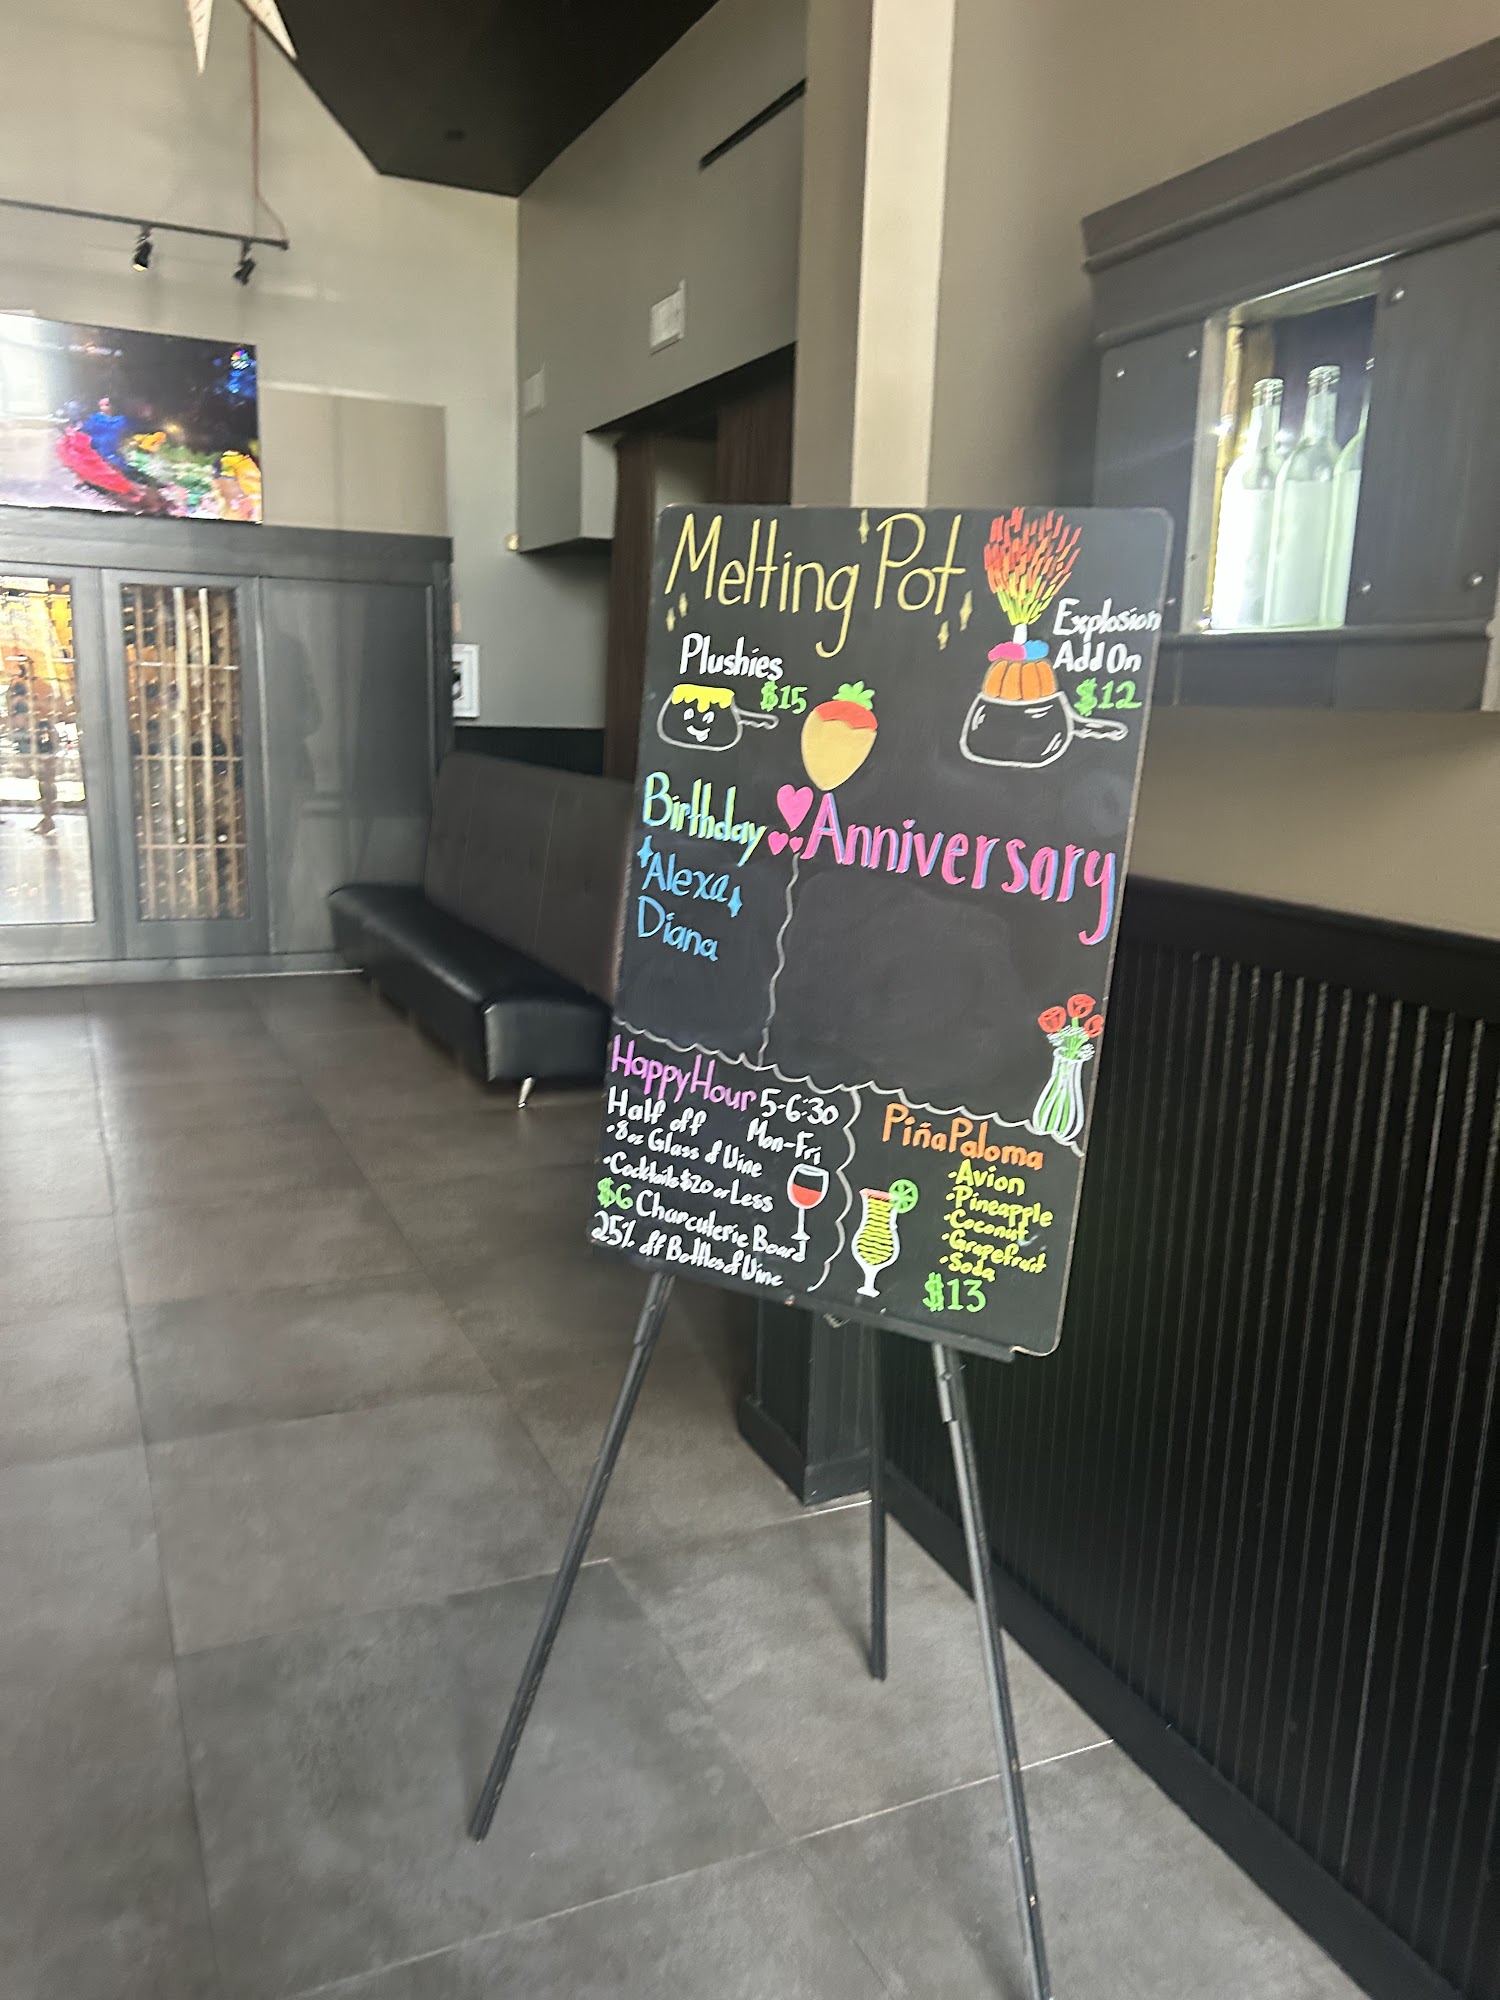 Melting Pot
Plushies
$15
Explosion
Add On
$12
Birthday
Alexa
Diana
Anniversary
Happy Hour 5-6:30
Mon-Fri
Half off
• 8oz Glass of Wine
• Cocktails $20 or Less
$6 Charcuterie Board
25% off Bottles of Wine
Piña Paloma
• Avion
• Pineapple
• Coconut
• Grapefruit
• Soda
$13